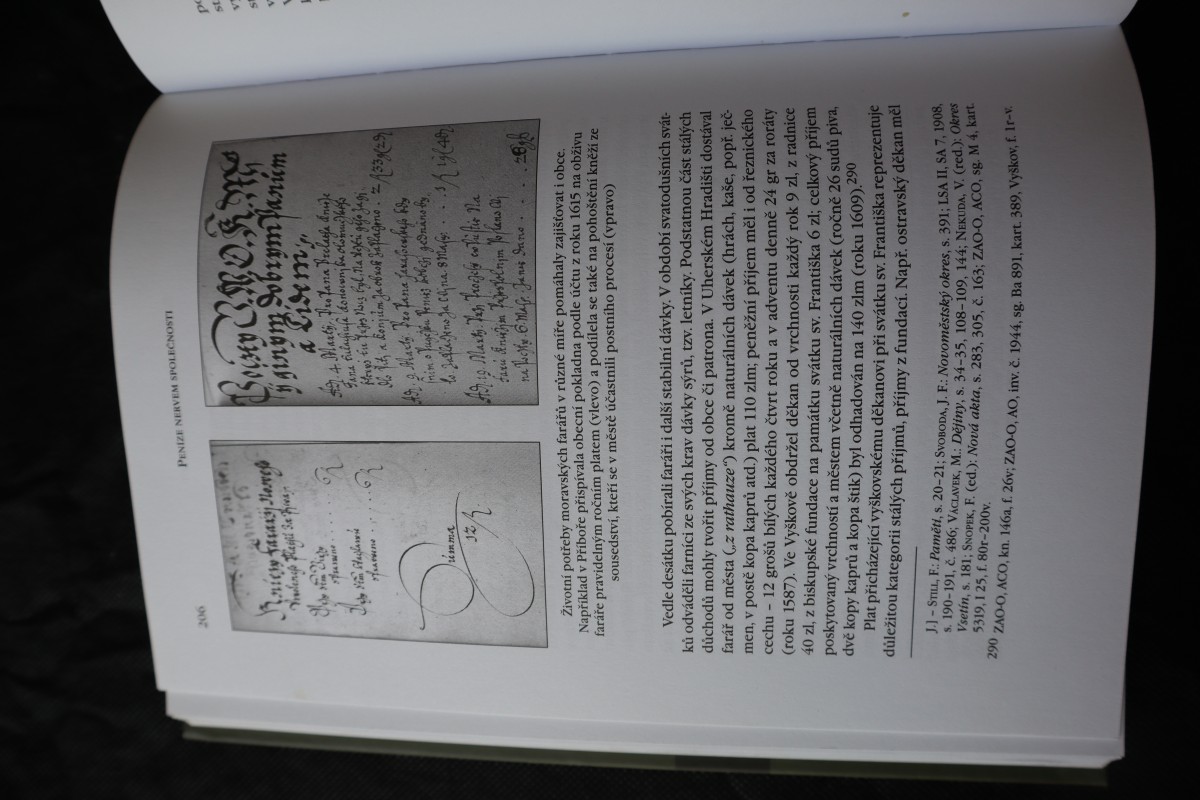 206
PENÍZE NERVEM SPOLEČNOSTI
Summa
12 R
a Lidem,
Životní potřeby moravských farářů v různé míře pomáhaly zajišťovat i obce.
Například v Příboře přispívala obecní pokladna podle účtu z roku 1615 na obživu
faráře pravidelným ročním platem (vlevo) a podílela se také na pohoštění kněží ze
sousedství, kteří se v městě účastnili postního procesí (vpravo)
Vedle desátku pobírali faráři i další stabilní dávky. V období svatodušních svát-
ků odváděli farníci ze svých krav dávky sýrů, tzv. letníky. Podstatnou část stálých
důchodů mohly tvořit příjmy od obce či patrona. V Uherském Hradišti dostával
farář od města („z rathauze“) kromě naturálních dávek (hrách, kaše, popř. ječ-
men, v postě kopa kaprů atd.) plat 110 zlm; peněžní příjem měl i od řeznického
cechu – 12 grošů bílých každého čtvrt roku a v adventu denně 24 gr za roráty
(roku 1587). Ve Vyškově obdržel děkan od vrchnosti každý rok 9 zl, z radnice
40 zl, z biskupské fundace na památku svátku sv. Františka 6 zl; celkový příjem
poskytovaný vrchností a městem včetně naturálních dávek (ročně 26 sudů piva,
dvě kopy kaprů a kopa štik) byl odhadován na 140 zlm (roku 1609).290
Plat přicházející vyškovskému děkanovi při svátku sv. Františka reprezentuje
důležitou kategorii stálých příjmů, příjmy z fundací. Např. ostravský děkan měl
J.] – STILL, F.: Paměti, s. 20–21; SVOBODA, J. F.: Novoměstský okres, s. 391; LSA II, SA 7, 1908,
s. 190–191, č. 486; VÁCLAVEK, M.: Dějiny, s. 34–35, 108–109, 144; NEKUDA, V. (red.): Okres
Vsetín, s. 181; SNOPEK, F. (ed.): Nová akta, s. 283, 305, č. 163; ZAO-O, ACO, sg. M 4, kart.
5319, l 25, f. 80r–200v.
290 ZAO-O, ACO, kn. 146a, f. 26v; ZAO-O, AO, inv. č. 1944, sg. Ba 891, kart. 389, Vyškov, f. 1r–v.